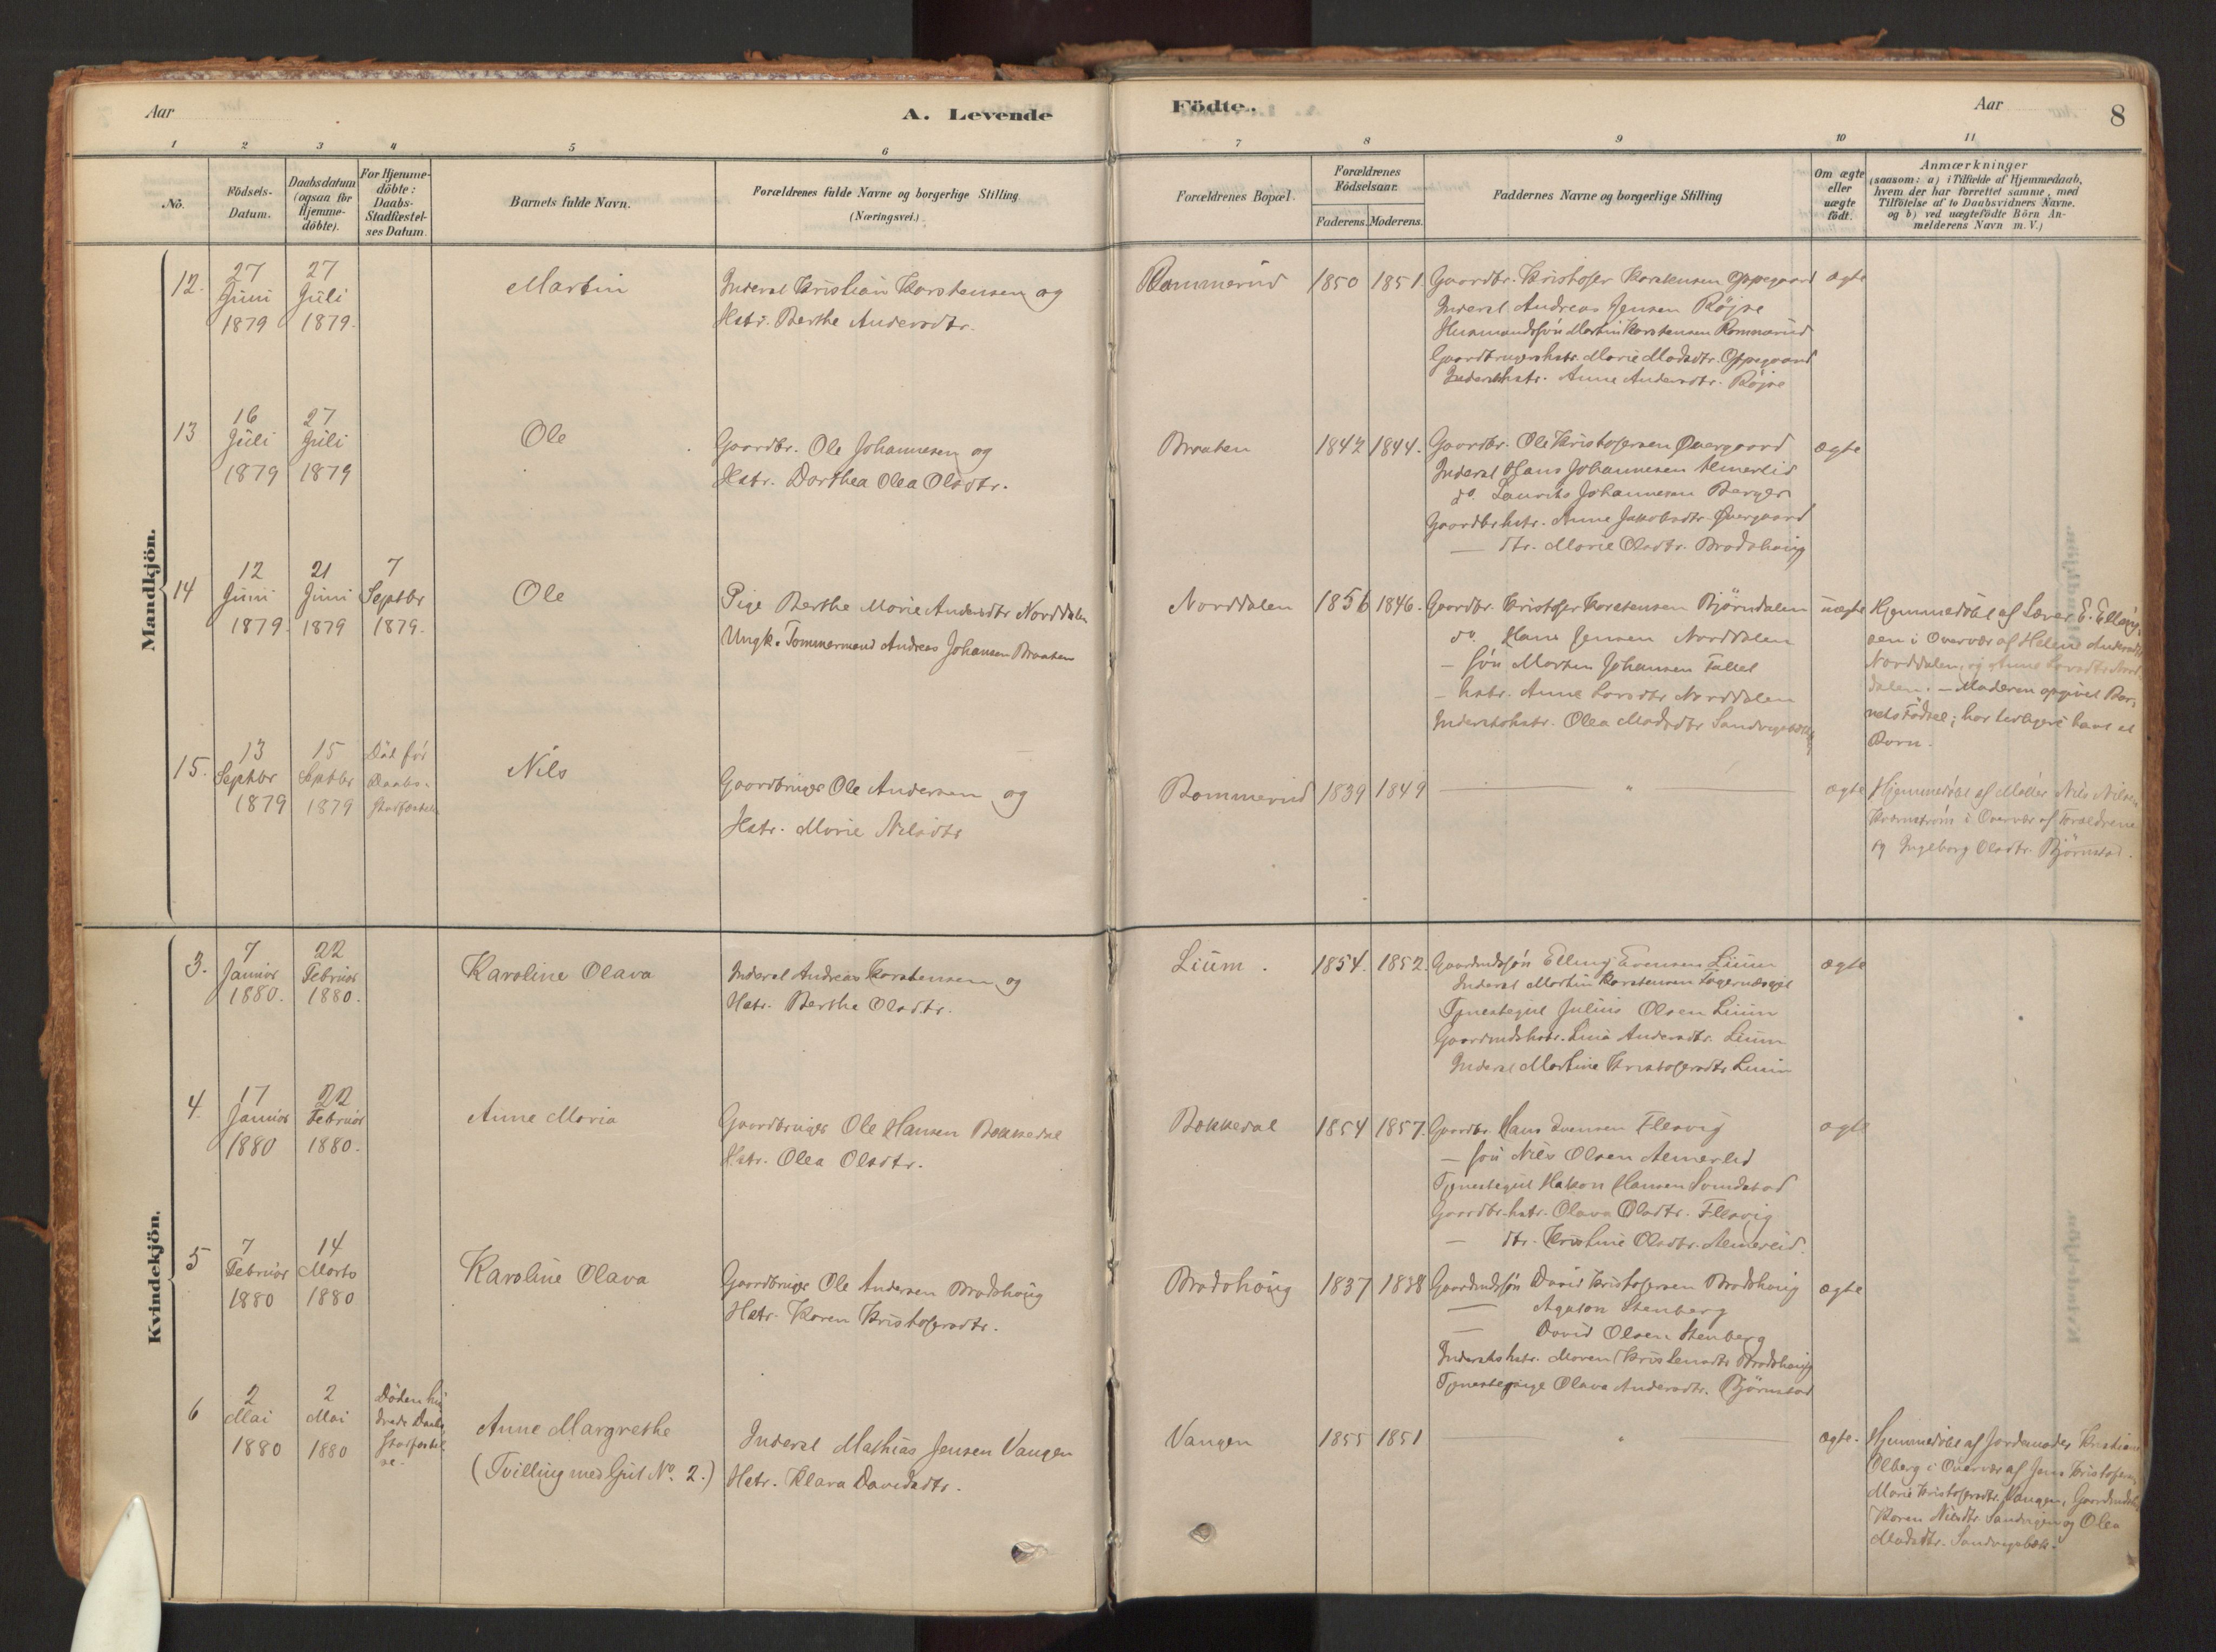 Aar
A. Levende
Födte.
Aar
8
1
2
3
4
5
6
7
8
9
10
11
No.
Födsels-
Datum.
Daabsdatum
(ogsaa for
Hjemme-
döbte).
For Hjemme-
döbte:
Daabs-
Stadfæstel-
ses Datum.
Barnets fulde Navn.
Forældrenes fulde Navne og borgerlige Stilling
(Næringsvei.)
Forældrenes Bopæl.
Forældrenes
Födselsaar.
Faderens.
Moderens.
Faddernes Navne og borgerlige Stilling
Om ægte
eller
uægte
födt.
Anmærkninger
(saasom: a) i Tilfælde af Hjemmedaab,
hvem der har forrettet samme, med
Tilföielse af to Daabsvidners Navne.
og b) ved uægtefödte Börn An-
melderens Navn m. V.)
Mandkjön.
12.
27
Juni
1879
27
Juli
1879.
Martin
Inderst Kristian Karstensen og
Hstr. Berthe Andersdtr.
Rommerud
1850
1851.
Gaardbr. Kristofer Karstensen Oppegaard
Inderst Andreas Jensen Röjse
Husmandssön Martin Karstensen Rommerud
Gaardbrugerhstr. Marie Madsdtr. Oppegaard
Indersthstr. Anne Andersdtr. Röjse
ægte
13
16
Juli
1879
27
Juli
1879
Ole
Gaardbr. Ole Johannesen og
Hstr. Dorthea Olea Olsdtr.
Braaten
1842
1844.
Gaardbr. Ole Kristofersen Övergaard
Inderst Hans Johannesen Almerlid
do. Laurits Johannesen Berger
Gaardbrhstr. Anne Jakobsdtr. Övergaard
— dtr. Marie Olsdtr. Bradshaug
ægte
14
12
Juni
1879.
21
Juni
1879
7
Septbr
1879.
Ole
Pige Berthe Marie Andersdtr Norddalen
Ungk. Tømmermand Andreas Johansen Braaten
Norddalen
1856
1846.
Gaardbr. Kristofer Karstensen Björndalen
do. Hans Jensen Norddalen
— sön Morten Johansen Fallet
— hstr. Anne Larsdtr Norddalen
Indersthstr. Olea Madsdtr
uægte
Hjemmedöbt af Lærer E. Elling-
sen i Overvær af Helene Andersdtr
Norddalen, og Anne Larsdtr Nord-
dalen. — Moderen opgivet Bar-
nets Födsel; har tidligere havt et
Barn.
15.
13
Septbr
1879
15
Septbr
1879
Död för
Daabs-
Stadfæstel
Nils
Gaardbruger Ole Andersen og
Hstr. Marie Nilsdtr
Rommerud
1839
1849
— " —
ægte
Hjemmedöbt af Möller Nils Nilsen
i Overvær af Forældrene
og Ingeborg Olsdtr. Björnstad.
Kvindekjön.
3.
7
Januar
1880.
22
Februar
1880.
Karoline Olava
Inderst Andreas Karstensen og
Hstr. Berthe Olsdtr.
Lium.
1854.
1852.
Gaardmdssön Elling Evensen Lium
Inderst Martin Karstensen
Tjenestegut Julius Olsen Lium
Gaardmdshstr. Lina Andersdtr. Lium
Inderst Martine Kristofersdtr Lium
ægte
4.
17
Januar
1880
22
Februar
1880.
Anne Maria
Gaardbruger Ole Hansen Bekkedal
Hstr. Olea Olsdtr.
Bekkedal
1854
1857.
Gaardbr. Hans Evensen Flesvig
— sön Nils Olsen Almerlid
Tjenestegut Hakon Hansen Sundstad
Gaardbr.hstr. Olava Olsdtr. Flesvig
— dtr. Kristine Olsdtr. Almerlid.
ægte
5
7
Februar
1880
14
Marts
1880
Karoline Olava
Gaardbruger Ole Andersen Bradshaug
Hstr. Karen Kristofersdtr.
Bradshaug
1837
1838
Gaardmdssön David Kristofersen Bradshaug
— Aguson Stenberg
— David Olsen Stenberg
Indersthstr. Maren Kristensdtr Bradshaug
Tjenestepige Olava Andersdtr. Björnstad
ægte
6
2
Mai
1880
2
Mai
1880
Döden hin-
drede Daabs-
Stadfæstel
se.
Anne Margrethe
(Tvilling med Gut No. 2.)
Inderst Mathias Jensen Vangen
Hstr. Klara Davidsdtr.
Vangen
1855
1851
— " —
ægte.
Hjemmedöbt af Jordemoder Kristiane
Ölberg i Overvær af Jens Kristofersen,
Marie Kristofersdtr. Vangen,
Karen Nilsdtr. Sandvigen og Olea
Madsdtr.